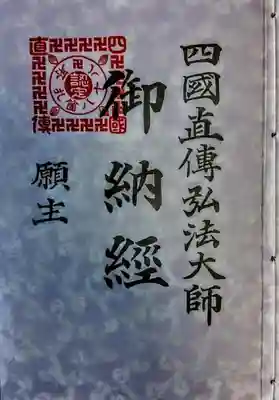 四國直傳弘法大師
御納經
願主
四國
直傳
認定